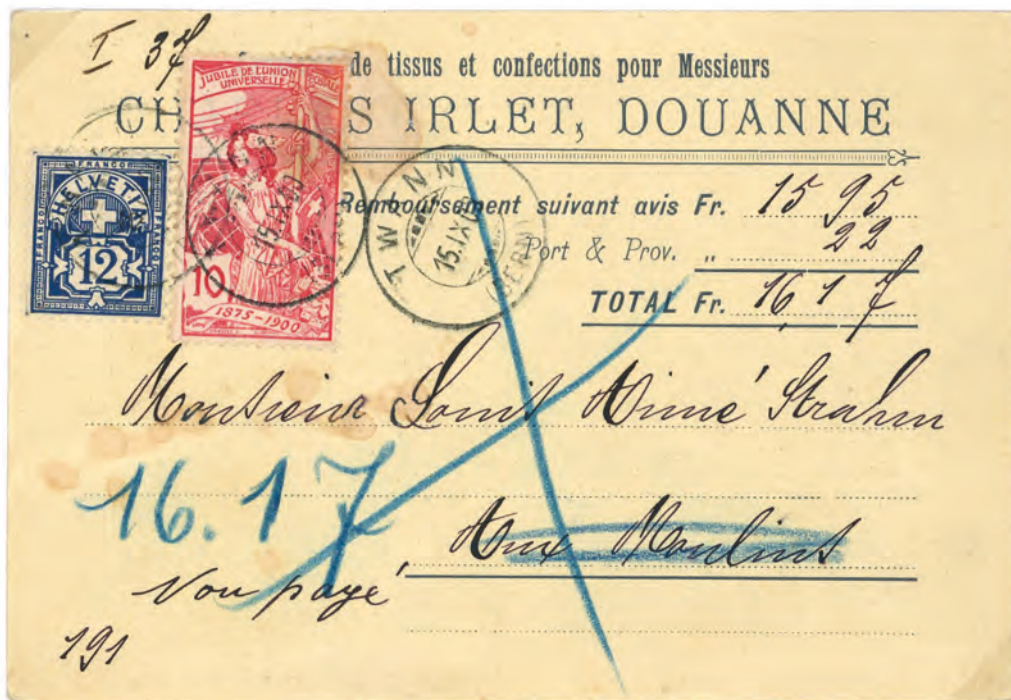 I 37
de tissus et confections pour Messieurs
CH S IRLET, DOUANNE
JUBILÉ DE L'UNION
UNIVERSELLE POSTALE
10
1875-1900
FRANCO
HELVETIA
FRANCO
FRANCO
12
15.IX.00
TWANN
15.IX
(BERN)
Remboursement suivant avis Fr. 15 95
Port & Prov. " 22
TOTAL Fr. 16,17
Monsieur Louis Aimé Strahm
16.17
Aux Moulins
Non payé
191